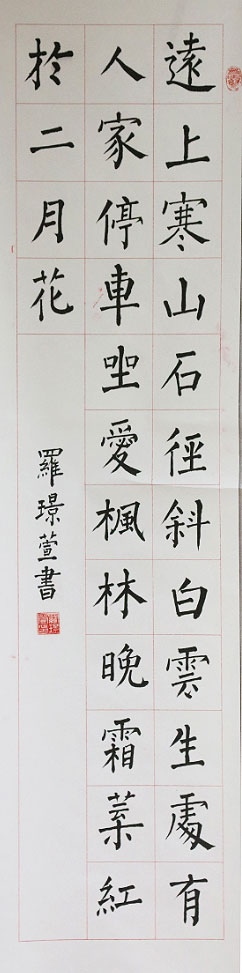 遠上寒山石徑斜白雲生處有
人家停車坐愛楓林晚霜葉紅
於二月花
羅璟萱書